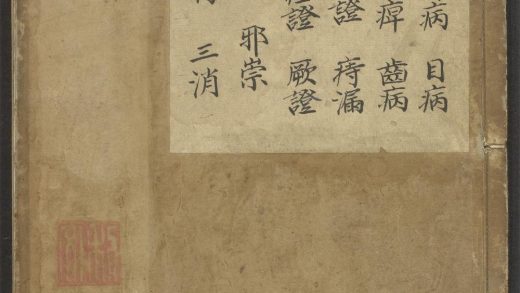 病 目病
痺 齒病
證 痔漏
證 厥證
邪祟
三消